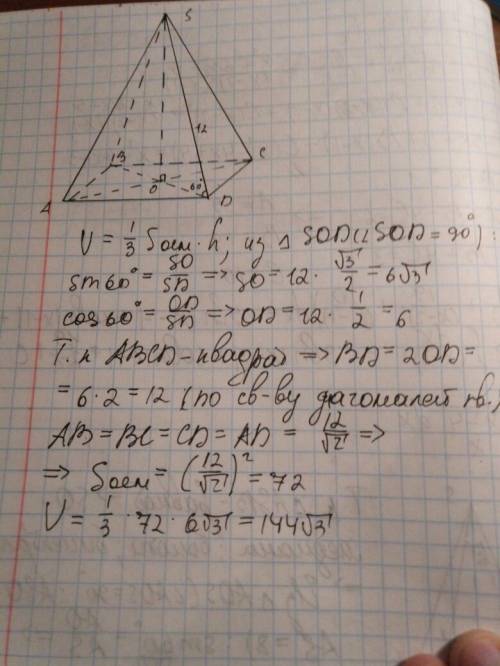 S
12
B
C
A
O
60°
D
V = 1/3 Sосн · h; из △ SOD (∠SOD = 90°):
sin60° = SO/SD => SO = 12 · √3/2 = 6√3
cos60° = OD/SD => OD = 12 · 1/2 = 6
Т.к ABCD - квадрат => BD = 2OD =
= 6·2 = 12 (по св-ву диагоналей кв.)
AB = BC = CD = AD = 12/√2 =>
=> Sосн = (12/√2)² = 72
V = 1/3 · 72 · 6√3 = 144√3